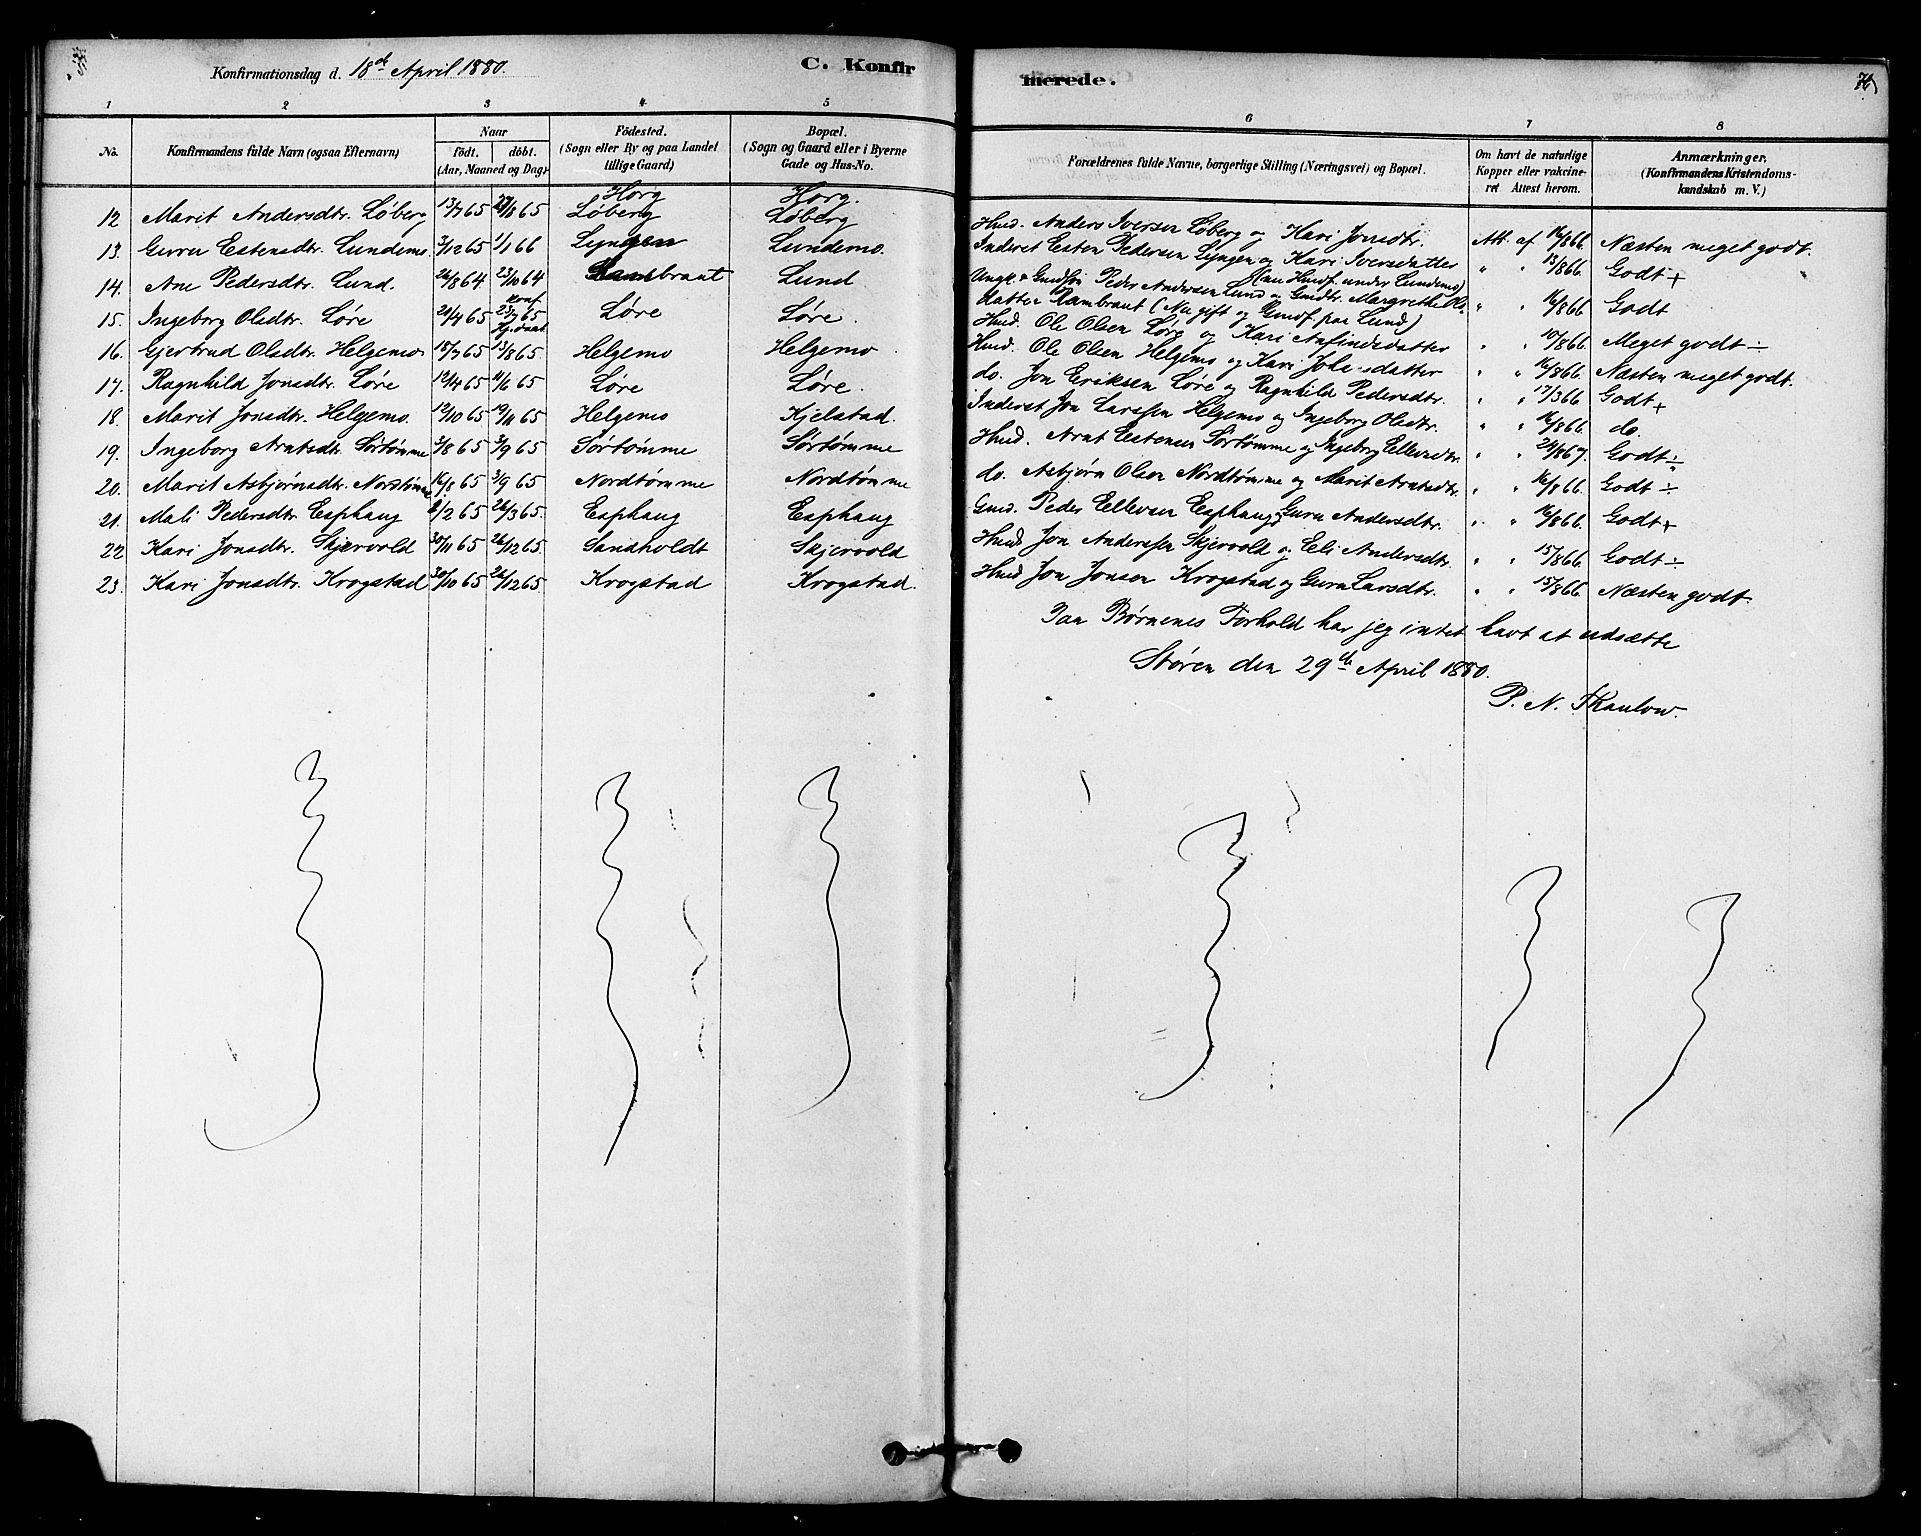 Konfirmationsdag d. 18de April 1880.
C. Konfirmerede.
1 2 3 4 5 6 7 8
No. Konfirmandens fulde Navn (ogsaa Efternavn) Naar födt. döbt. (Aar, Maaned og Dag) Födested. (Sogn eller By og paa Landet tillige Gaard) Bopæl. (Sogn og Gaard eller i Byerne Gade og Hus-No. Forældrenes fulde Navne, borgerlige Stilling (Næringsvei) og Bopæl. Om havt de naturlige Kopper eller vakcineret Attest herom. Anmærkninger. (Konfirmandens Kristendomskundskab m. V.)
Horg Horg.
12 Marit Andersdtr. Löberg 13/7 65 27/8 65 Löberg Löberg Husd. Anders Iversen Löberg og Kari Jonsdtr. Att. af 16/8 66 Næsten meget godt.
13. Guru Estensdtr. Lundemo 3/12 65 1/1 66 Lyngen Lundemo. Inderst Esten Pedersen Lyngen og Kari Iversdatter (nu Husf. under Lundemo) " " 15/8 66. Godt +
14. Ane Pedersdtr. Lund. 26/8 64 23/10 64 Rambraut Lund Ungk. & Gmdsøn Peder Andersen Lund og Gmdtr. Margrethe Olsdatter Rambraut (Nu gift og Gmdf. paa Lund) " " 16/8 66 Godt
15. Ingeborg Olsdtr. Löre 21/4 65 23/7 65 Löre Löre. Husd. Ole Olsen Löre og Kari Anfindsdatter " " 10/8 66. Meget godt ÷
16. Gjertrud Olsdtr. Helgemo 15/7 65 13/8 65 Helgemo Helgemo Husd. Ole Olsen Helgemo og Kari " " 16/8 66. Næsten meget godt.
17. Ragnhild Jonsdtr. Löre 12/4 65 11/6 65 Löre Löre. do. Jon Eriksen Löre og Ragnhild Pedersdtr. " " 17/3 66 Godt +
18. Marit Jonsdtr. Helgemo. 12/10 65 19/11 65 Helgemo Kjelstad. Inderst Jon Larssen Helgemo og Ingeborg Olsdtr. " " 16/8 66. do.
19. Ingeborg Arntsdtr. Sörtömme 3/8 65 3/9 65 Sörtömme Sörtömme Husd. Arnt Estensen Sörtömme og Ingeborg Ellevsdtr. " " 24/8 67. Godt ÷
20. Marit Asbjörnsdtr. Nordtömme 16/8 65 3/9 65 Nordtömme Nordtömme do. Asbjörn Olsen Nordtömme og Marit Arntsdtr. " " 16/8 66. Godt ÷
21. Mali Pedersdtr Esphaug 2/2 65 26/3 65. Esphaug Esphaug Gmd. Peder Ellevsen Esphaug og Guru Andersdtr. " " 16/8 66. Godt +
22 Kari Jonsdtr. Skjervold 30/11 65 26/12 65 Sandholdt Skjervold Husd. Jon Anderssen Skjervold og Eli Andersdtr. " " 15/8 66. Godt ÷
23. Kari Jonsdtr. Krogstad 30/10 65 26/12 65 Krogstad Krogstad. Husd Jon Jonsen Krogstad og Guru Larsdtr. " " 15/8 66. Næsten godt.
Paa Börnenes Forhold har jeg intet havt at udsætte
Stören den 29de April 1880.
P. N. Thaulow.